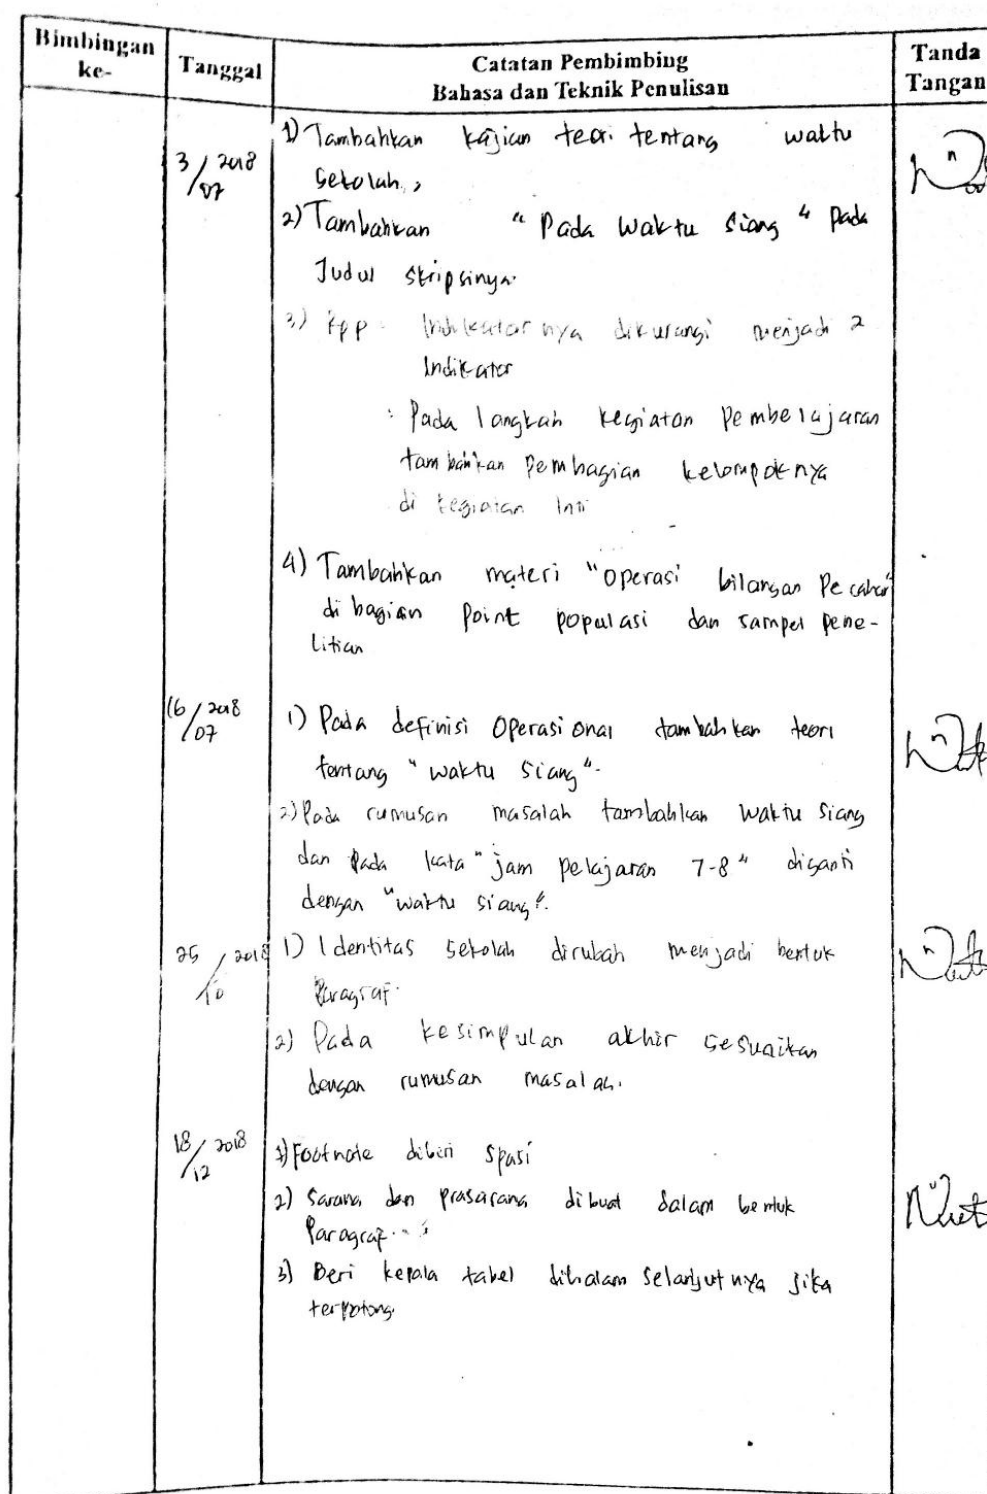 Bimbingan ke-
Tanggal
Catatan Pembimbing
Bahasa dan Teknik Penulisan
Tanda Tangan
3/07 2018
1) Tambahkan kajian teori tentang waktu
sekolah,
2) Tambahkan "Pada Waktu Siang" pada
Judul Skripsinya.
3) RPP : Indikatornya dikurangi menjadi 2
Indikator
: Pada langkah kegiatan Pembelajaran
tambahkan Pembagian kelompoknya
di kegiatan Inti
4) Tambahkan materi "Operasi bilangan Pecahan"
di bagian Point populasi dan sampel pene-
litian
16/07 2018
1) Pada definisi Operasional tambahkan teori
tentang "waktu siang".
2) Pada rumusan masalah tambahkan waktu siang
dan Pada kata "jam pelajaran 7-8" diganti
dengan "waktu siang".
25/10 2018
1) Identitas sekolah dirubah menjadi bentuk
Paragraf.
2) Pada kesimpulan akhir sesuaikan
dengan rumusan masalah.
18/12 2018
1) Footnote diberi spasi
2) Sarana dan prasarana dibuat dalam bentuk
Paragraf...
3) Beri kepala tabel dihalam selanjutnya jika
terpotong.